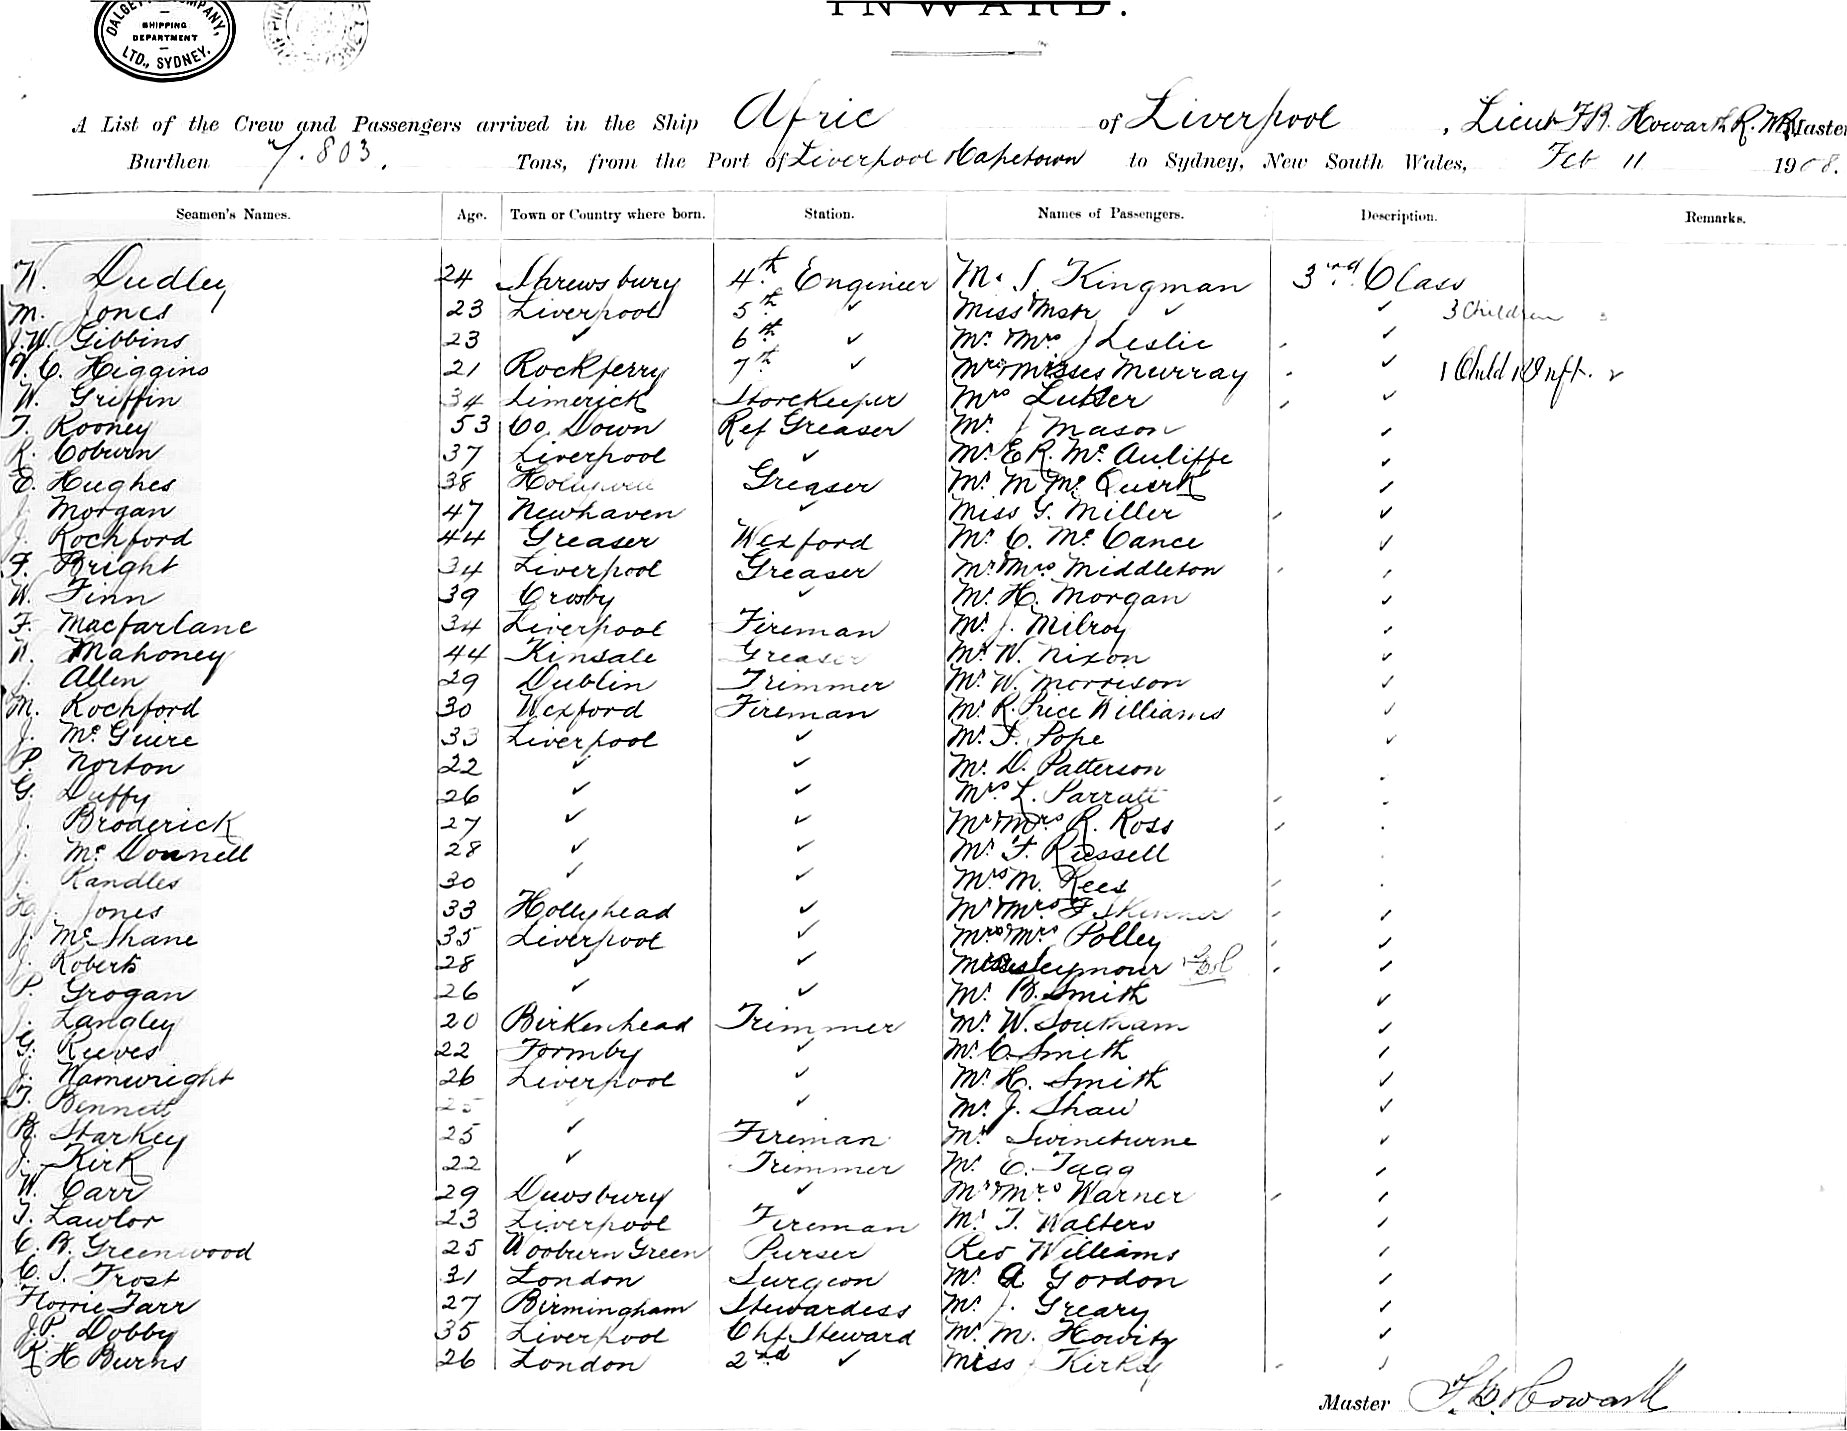 DALGETY & COMPANY, LTD., SYDNEY.
SHIPPING DEPARTMENT
INWARD.
A List of the Crew and Passengers arrived in the Ship Afric of Liverpool, Lieut F.B. Howarth R.N.R. Master
Burthen 7.803. Tons, from the Port of Liverpool & Capetown to Sydney, New South Wales, Feb 11 1908.
Seamen's Names. Age. Town or Country where born. Station. Names of Passengers. Description. Remarks.
W. Dudley 24 Shrewsbury 4th Engineer Mr. S. Kingman 3rd Class
M. Jones 23 Liverpool 5th ✓ Miss & Mstr ✓ ✓ 3 Children
J.W. Gibbins 23 ✓ 6th ✓ Mr. & Mrs J Leslie ✓
C. Higgins 21 Rockferry 7th ✓ Mrs & Misses Murray ✓ 1 Child 1 Inft. ✓
W. Griffin 34 Limerick Storekeeper Mrs Lutser ✓
T. Rooney 53 Co. Down Ref Greaser Mr. J Mason ✓
R. Coburn 37 Liverpool ✓ Mr. E R. Mc Auliffe ✓
E. Hughes 38 Greaser Mr. M Mc Querk ✓
J. Morgan 47 Newhaven ✓ Miss G. Miller ✓
J. Rochford 44 Greaser Wexford Mr. C. Mc Cance ✓
F. Bright 34 Liverpool Greaser Mr & Mrs Middleton ✓
W. Finn 39 Crosby ✓ Mr. H. Morgan ✓
F. Macfarlane 34 Liverpool Fireman Mr. J. Milroy ✓
Mahoney 44 Kinsale Greaser Mr. W. Nixon ✓
J. Allen 29 Dublin Trimmer Mr. W. Morrison ✓
M. Rochford 30 Wexford Fireman Mr. R. Price Williams ✓
J. Mc Guire 33 Liverpool ✓ Mr. T. Pope ✓
P. Norton 22 ✓ ✓ Mr. D. Patterson
G. Duffy 26 ✓ ✓ Mrs L. Parratt
J. Broderick 27 ✓ ✓ Mr & Mrs R. Ross
J. Mc Donnell 28 ✓ ✓ Mr. F. Russell
J. Randles 30 ✓ ✓ Mrs M. Rees
H. J. Jones 33 Hollyhead ✓ Mr & Mrs F Skinner ✓
J. McShane 35 Liverpool ✓ Mrs & Mrs Polley ✓
J. Roberts 28 ✓ ✓ Misses Seymour ✓
P. Grogan 26 ✓ ✓ Mr. B. Smith ✓
J. Langley 20 Birkenhead Trimmer Mr. W. Southam ✓
G. Reeves 22 Formby ✓ Mr. C. Smith ✓
J. Wainwright 26 Liverpool ✓ Mr. H. Smith ✓
T. Bennett 25 ✓ ✓ Mr. J. Shaw ✓
B. Starkey 25 ✓ Fireman Mr. Swineturne ✓
J. Kirk 22 ✓ Trimmer Mr. C. Tagg ✓
W. Carr 29 Dewsbury ✓ Mr & Mrs Warner ✓
T. Lawlor 23 Liverpool Fireman Mr. T. Walters ✓
C. B. Greenwood 25 Wooburn Green Purser Rev Williams ✓
C. S. Frost 31 London Surgeon Mr. A Gordon ✓
Florrie Tarr 27 Birmingham Stewardess Mr. J. Greary ✓
J.P. Dobby 35 Liverpool Chf Steward Mr. M. Howitz ✓
R H Burns 26 London 2nd ✓ Miss J Kirky ✓
Master F. B. Howarth